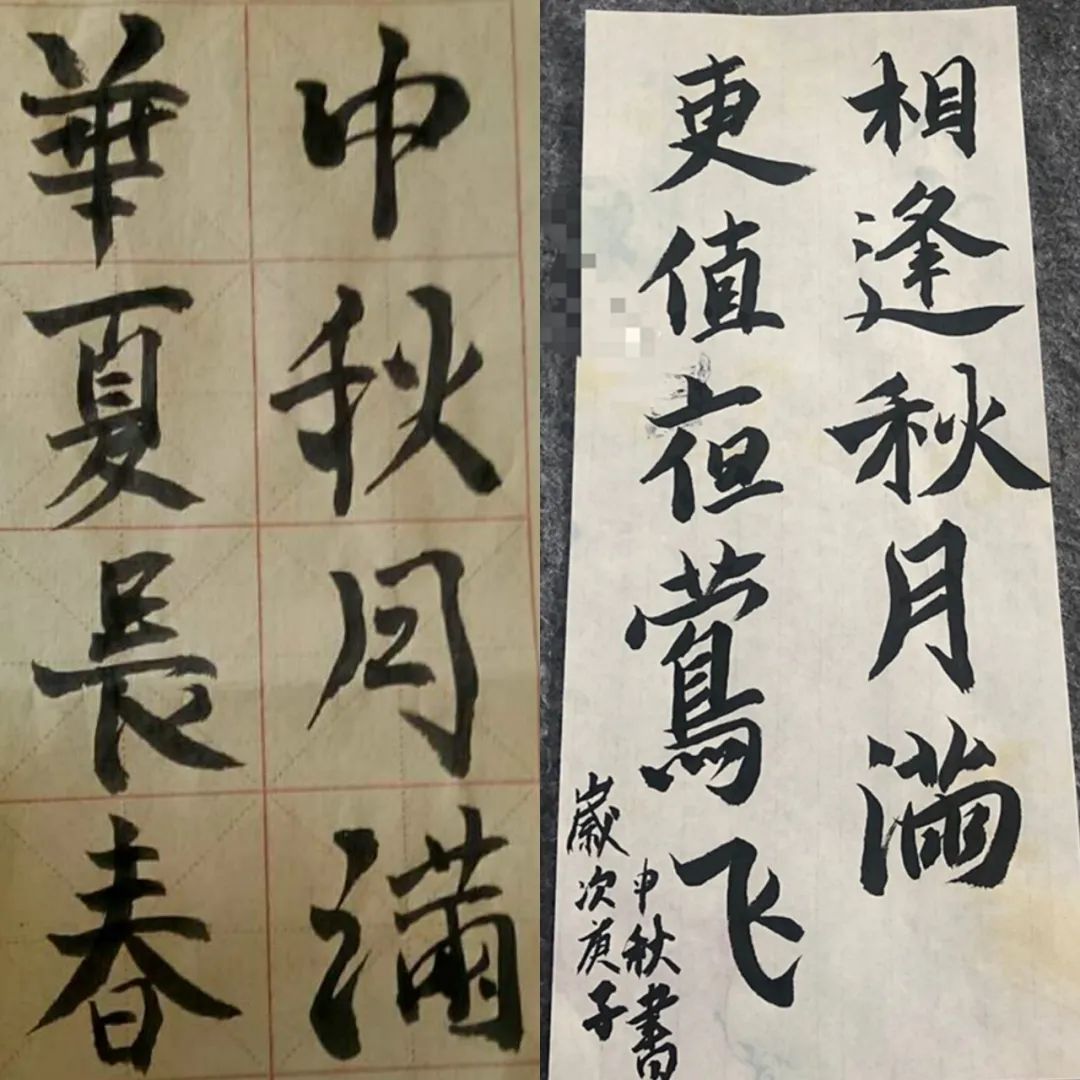 中秋月滿
華夏長春
相逢秋月满
更值夜鶯飞
中秋書
歲次庚子